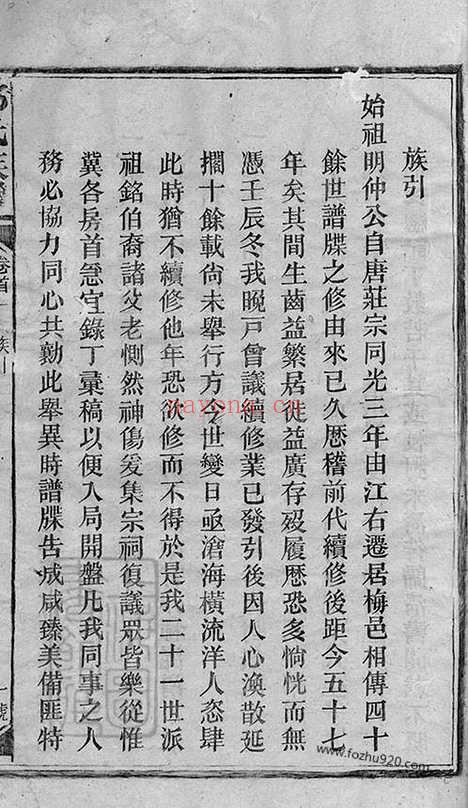 族引
始祖明仲公自唐莊宗同光三年由江右遷居梅邑相傳四十
餘世譜牒之修由來已久歷稽前代續修後距今五十七
年矣其間生齒益繁居徙益廣存歿履歷恐多惝恍而無
憑壬辰冬我晚戸曾議續修業已發引後因人心渙散延
擱十餘載尚未舉行方今世變日亟滄海橫流洋人恣肆
此時猶不續修他年恐欲修而不得於是我二十一世派
祖銘伯裔諸父老惻然神傷爰集宗祠復議眾皆樂從惟
冀各房首急宜錄丁彙稿以便入局開盤凡我同事之人
務必協力同心共勷此舉異時譜牒告成咸臻美備匪特
卷首
族引
一號
nayona.cn
www.fozhu920.com